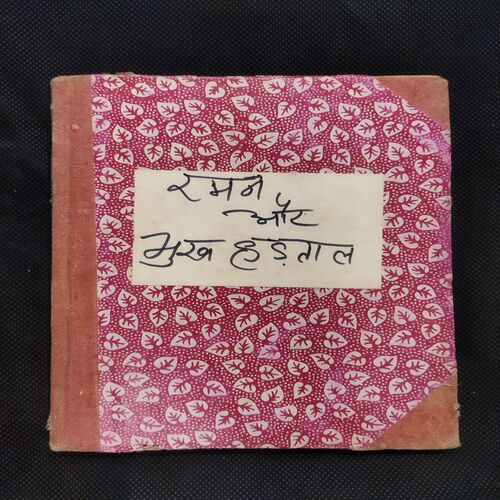 रमन
और
भुख हड़ताल